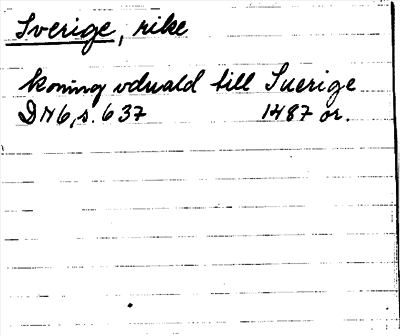 Sverige, rike
koning vduald till Suerige
DN 6, s. 637 1487 or.